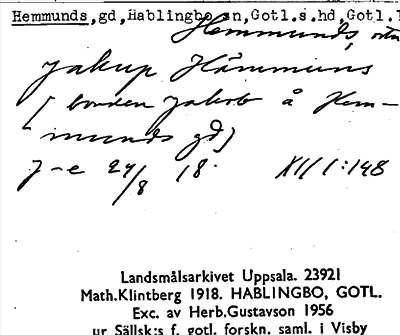 Hemmunds,gd,Hablingbo sn,Gotl.s.hd,Gotl.l
Hemmunds,
Jakup Hämmuns
[bonden Jakob å Hem-
munds gd]
J-e 24/8 18. XII/1:148
Landsmålsarkivet Uppsala. 23921
Math.Klintberg 1918. HABLINGBO, GOTL.
Exc. av Herb.Gustavson 1956
ur Sällsk:s f. gotl. forskn. saml. i Visby